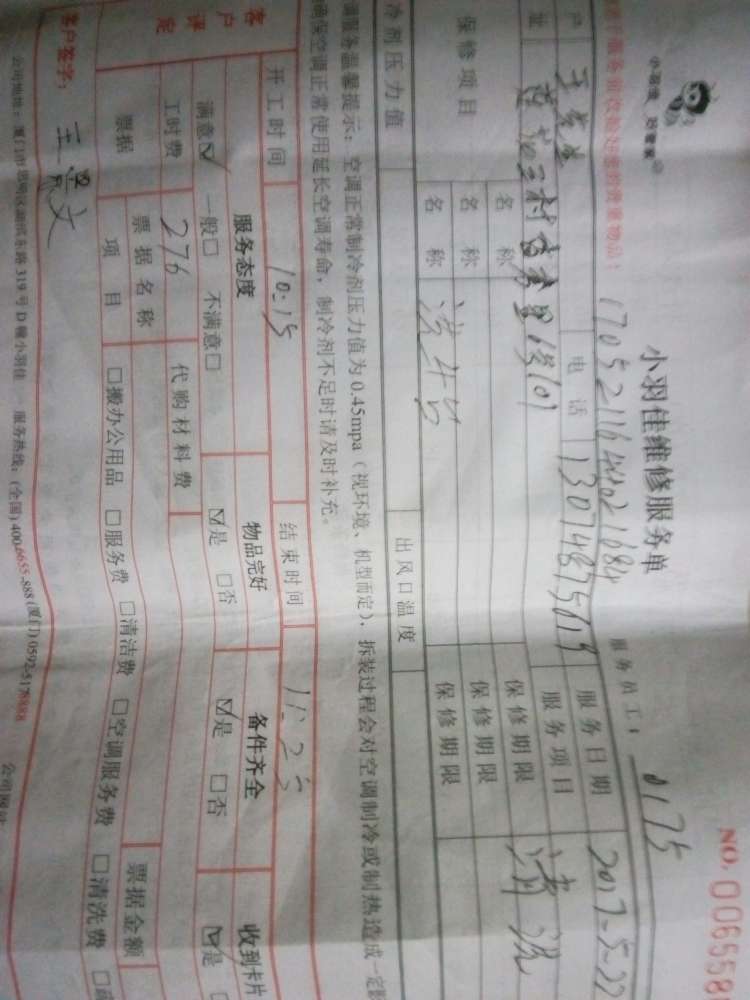 小羽佳 好管家
NO. 006558
小羽佳维修服务单
服务员工: 0175
17052116440021684
户 王先生 电话 13074875619 服务日期 2017-5-22
址 服务项目 清洗
保修项目 名称 保修期限
名称 保修期限
名称 保修期限
冷剂压力值 出风口温度
调服务温馨提示:空调正常制冷剂压力值为0.45mpa(视环境、机型而定),拆装过程会对空调制冷或制热造成一定
确保空调正常使用延长空调寿命,制冷剂不足时请及时补充。
开工时间 10:15 结束时间 11:25
客户评定 服务态度 物品完好 备件齐全 收到卡片
满意☑ 一般□ 不满意□ ☑是 □否 ☑是 □否 ☑是
工时费 276 代购材料费
票据 票据名称 票据金额
项目 □搬办公用品 □服务费 □清洁费 □空调服务费 □清洗费
客户签字:
公司地址:厦门市思明区湖滨东路319号D幢小羽佳 服务热线:(全国)400-6655-888(厦门)0592-5178888 公司网站